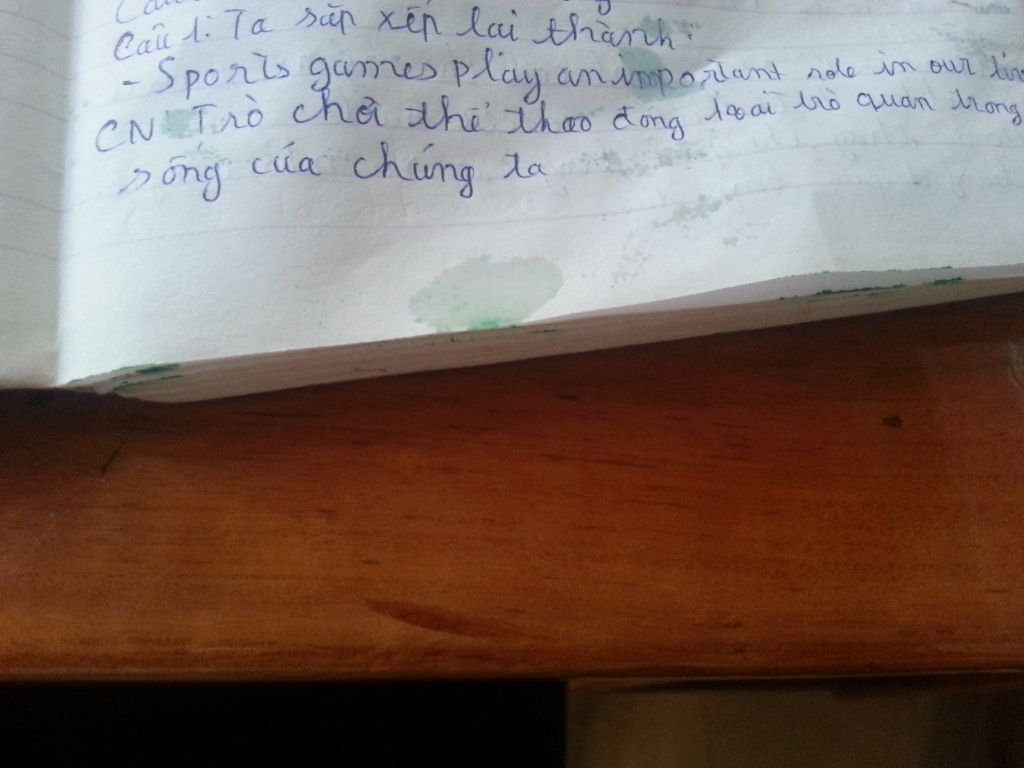 Câu 1: Ta sắp xếp lai thành:
- Sports games play an important role in our
CN Trò chơi thể thao đóng trò quan trong
sống của chúng ta